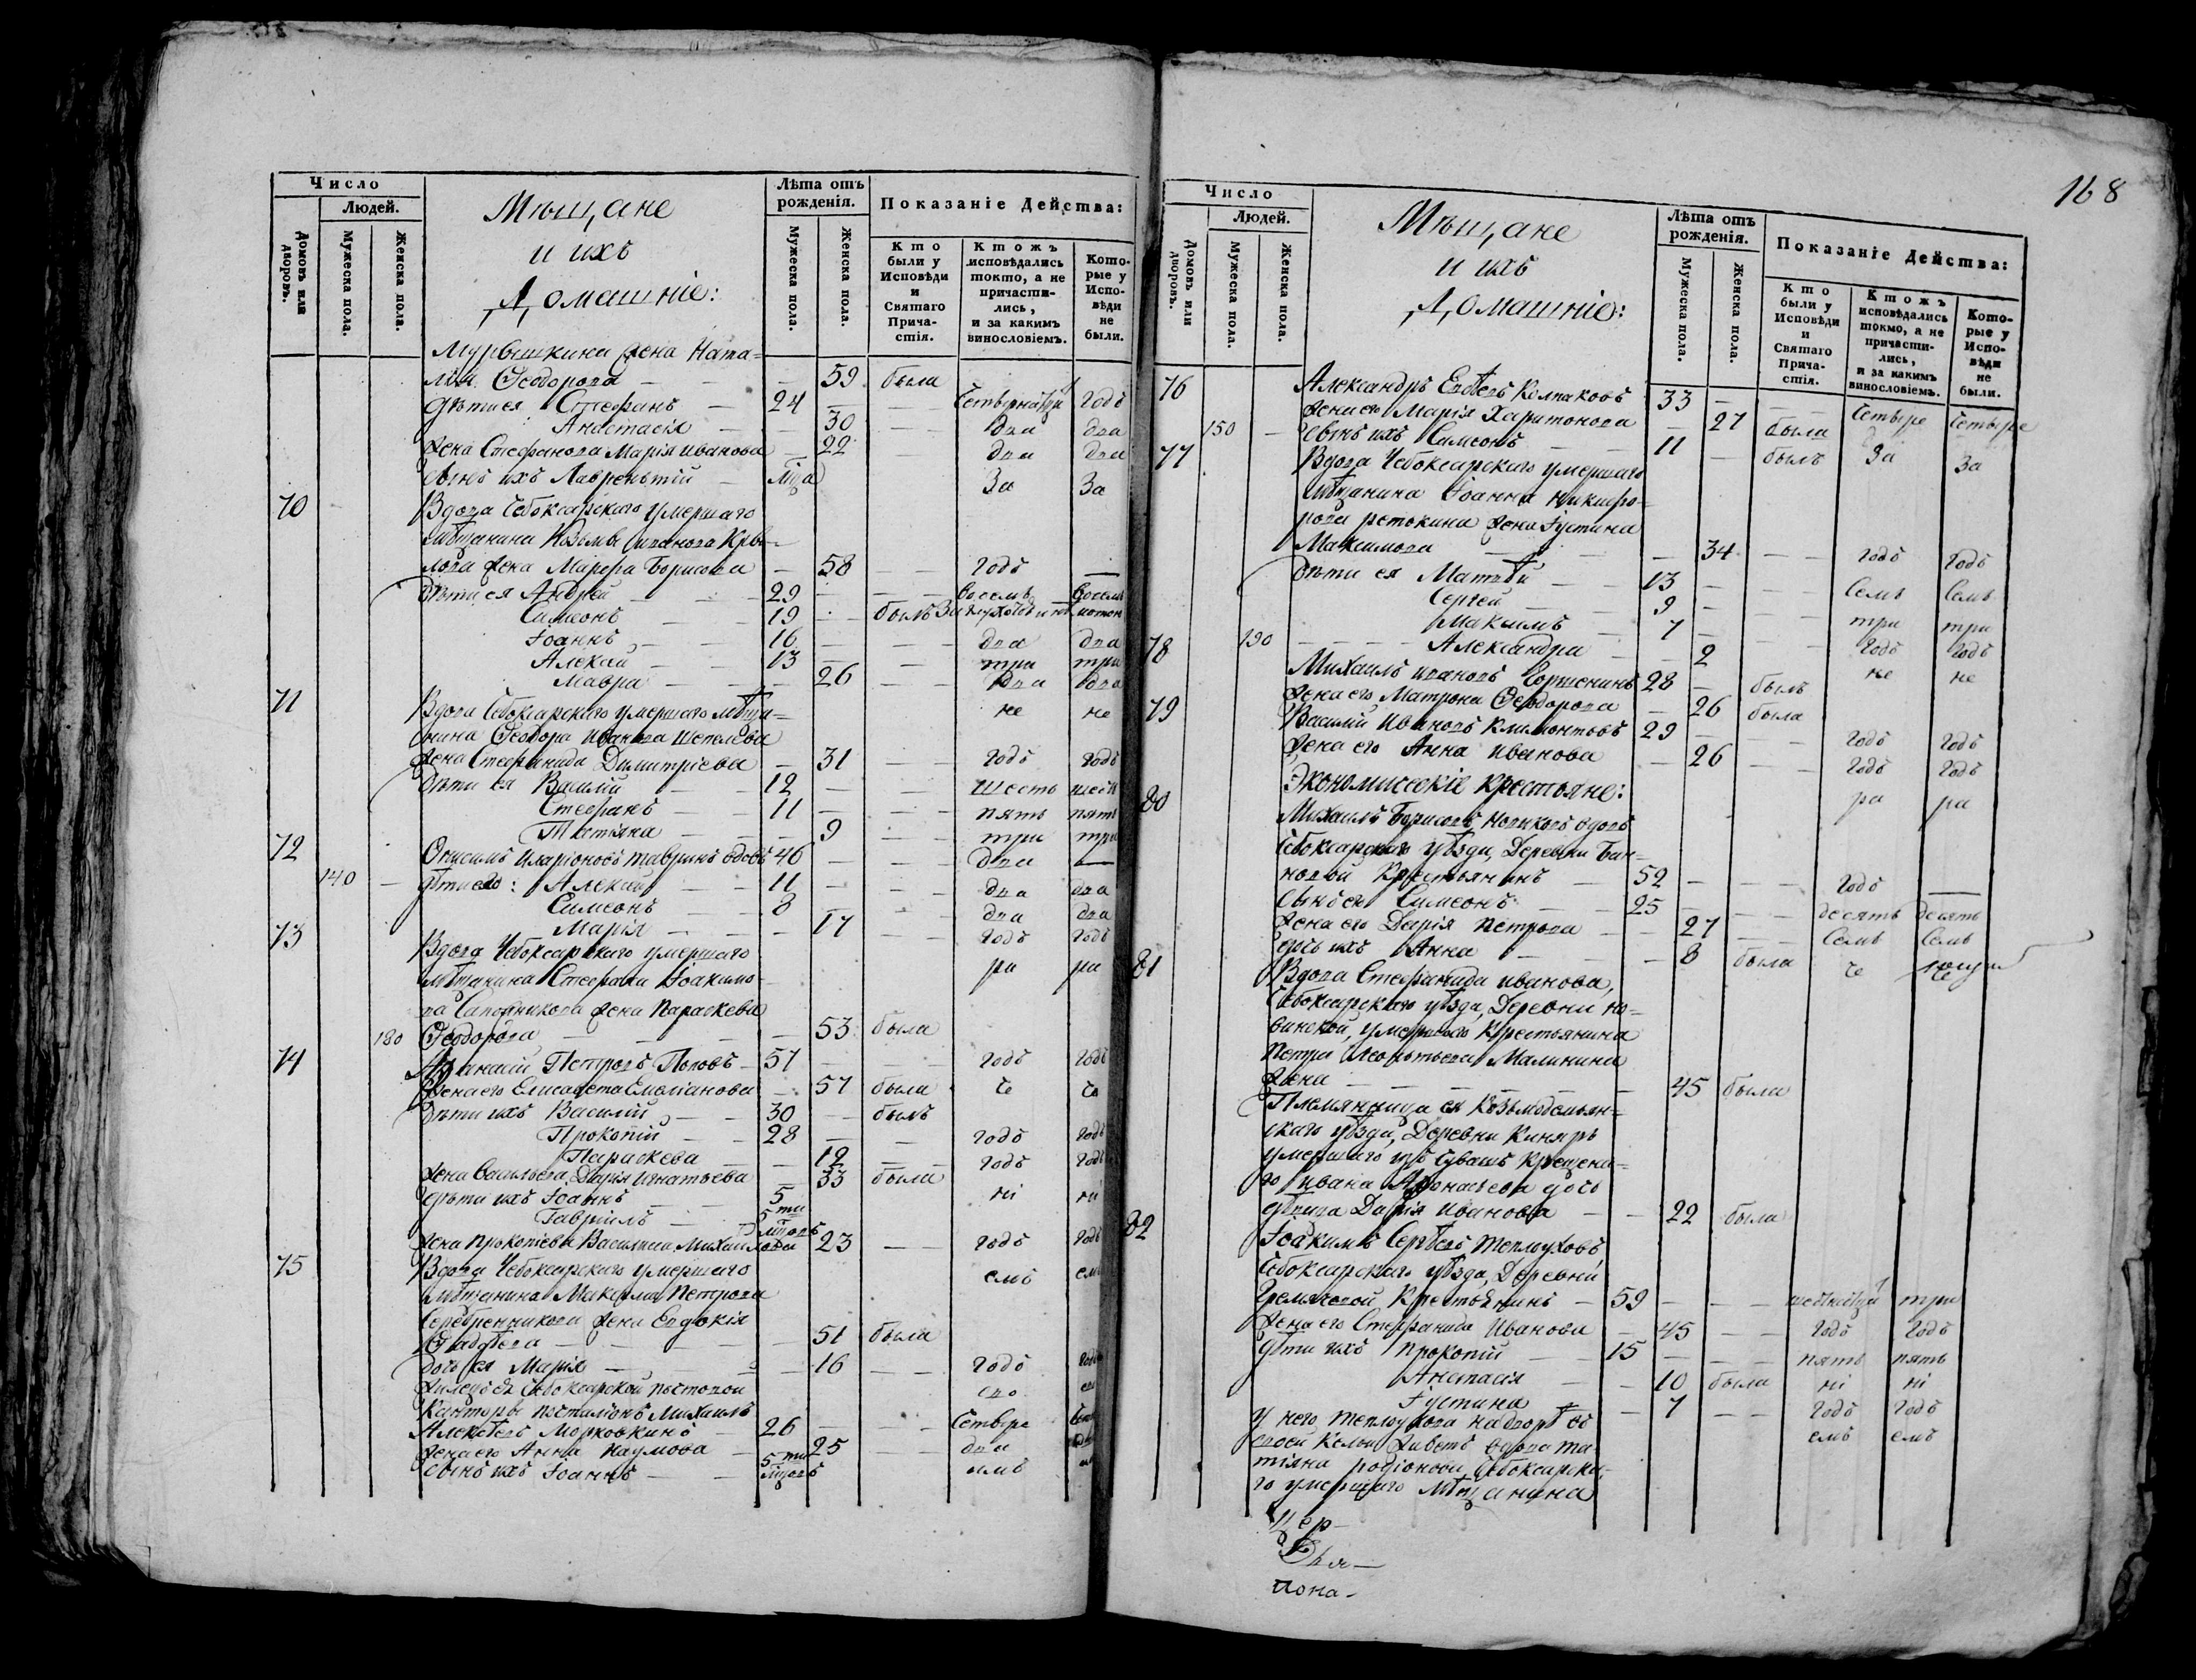 Число
Людей.
Домовъ или дворовъ.
Мужеска пола.
Женска пола.
Мѣщане
и ихъ
Домашніе:
Лѣта отъ рожденія.
Мужеска пола.
Женска пола.
Показаніе Дѣйства:
Кто были у Исповѣди и Святаго Причастія.
Ктожъ исповѣдались токмо, а не причастились, и за какимъ винословіемъ.
Которые у Исповѣди не были.
жена Ната=
лія Ѳеодорова — 59 была
дѣти ея Стефанъ — 24 годъ
Анастасія — 30 два два
жена Стефанова Марія Иванова 22 два два
сынъ ихъ Лаврентій — За За
70 Вдова Чебоксарскаго умершаго
мѣщанина Козьмы Иванова
жена Марѳа Борисова — 58 годъ —
дѣти ея Андрей — 29 восемь восемь
Симеонъ — 19 былъ
Іоаннъ — 16 два два
Алексѣй — 13 три три
Мавра — 26 два два
71 Вдова Чебоксарскаго умершаго мѣща= не не
нина Ѳеодора Иванова Шепелева
жена Стефанида Димитріева — 31 годъ годъ
дѣти ея Василій — 12 шесть
Стефанъ — 11 пять пять
Татіяна — 9 три три
72 Онисимъ Иларіоновъ вдовъ 46 два —
140 дѣти его: Алексѣй — 11 два два
Симеонъ — 8 два два
Марія — 17 годъ годъ
73 Вдова Чебоксарскаго умершаго ра ра
мѣщанина Стефана Іоакимо=
ва Сапожникова жена Параскева
180 Ѳеодорова — 53 была
74 Петровъ Поповъ — 57 годъ годъ
жена его Елисавета Емеліанова — 57 была че че
дѣти ихъ Василій — 30 былъ
Прокопій — 28 годъ годъ
Параскева — 12 годъ годъ
жена Васильева Дарія Игнатьева — 33 была
дѣти ихъ Іоаннъ — 5 ни ни
Гавріилъ — 5ти
жена Прокопіева Василиса Михаилова 23 годъ годъ
75 Вдова Чебоксарскаго умершаго емъ емъ
мѣщанина Макарія Петрова
Серебренникова жена Евдокія
— 51 была
дочь ея Марія — 16 годъ
Чебоксарской почтовой
Конторы почталіонъ Михаилъ
Алексѣевъ Морковкинъ — 26 четыре
жена его Анна Наумова — 25 два
сынъ ихъ Іоаннъ — 5ти
168
Число
Людей.
Домовъ или дворовъ.
Мужеска пола.
Женска пола.
Мѣщане
и ихъ
Домашніе:
Лѣта отъ рожденія.
Мужеска пола.
Женска пола.
Показаніе Дѣйства:
Кто были у Исповѣди и Святаго Причастія.
Ктожъ исповѣдались токмо, а не причастились, и за какимъ винословіемъ.
Которые у Исповѣди не были.
76 Александръ Колпаковъ 33 четыре четыре
жена его Марія Харитонова — 27 была
150 сынъ ихъ Симеонъ — 11 былъ За За
77 Вдова Чебоксарскаго умершаго
мѣщанина Іоанна Никифо=
рова жена Іустина
Максимова — 34 годъ годъ
дѣти ея Матвѣй — 13 семь семь
Сергей — 9 три три
Максимъ — 7 годъ годъ
190 Александра — 2 не не
78 Михаилъ Ивановъ 28 былъ
жена его Матрона Ѳеодорова — 26 была
79 Василій Ивановъ Климонтовъ 29 годъ годъ
жена его Анна Иванова — 26 годъ годъ
Экономическіе Крестьяне: ра ра
80 Михаилъ Борисовъ Новиковъ вдовъ
Чебоксарскаго уѣзда, Деревни Бан=
новой Крестьянинъ — 52 годъ —
сынъ его Симеонъ — 25 десять десять
жена его Дарія Петрова — 27 семь семь
дочь ихъ Анна — 8 была че
81 Вдова Стефанида Иванова,
Чебоксарскаго уѣзда, Деревни
умершаго Крестьянина
Петра Леонтьева Малинина
жена — 45 была
Племянница ея Козьмодемьян=
скаго уѣзда, Деревни Киняръ
умершаго изъ Чувашъ Крещена=
го Ивана Афонасьева дочь
дѣвица Дарія Иванова — 22 была
82 Іоакимъ Сергѣевъ Теплоуховъ,
Чебоксарскаго уѣзда, Деревни
Гремячевой Крестьянинъ — 59 три
жена его Стефанида Иванова — 45 годъ годъ
дѣти ихъ Прокопій — 15 пять пять
Анастасія — 10 была ни ни
Іустина — 7 годъ годъ
У него Теплоухова на дворѣ въ емъ емъ
своей Кельи живетъ вдова Та=
тіяна Родіонова Чебоксарска=
го умершаго Мѣщанина
Цер—
Дья—
пона—